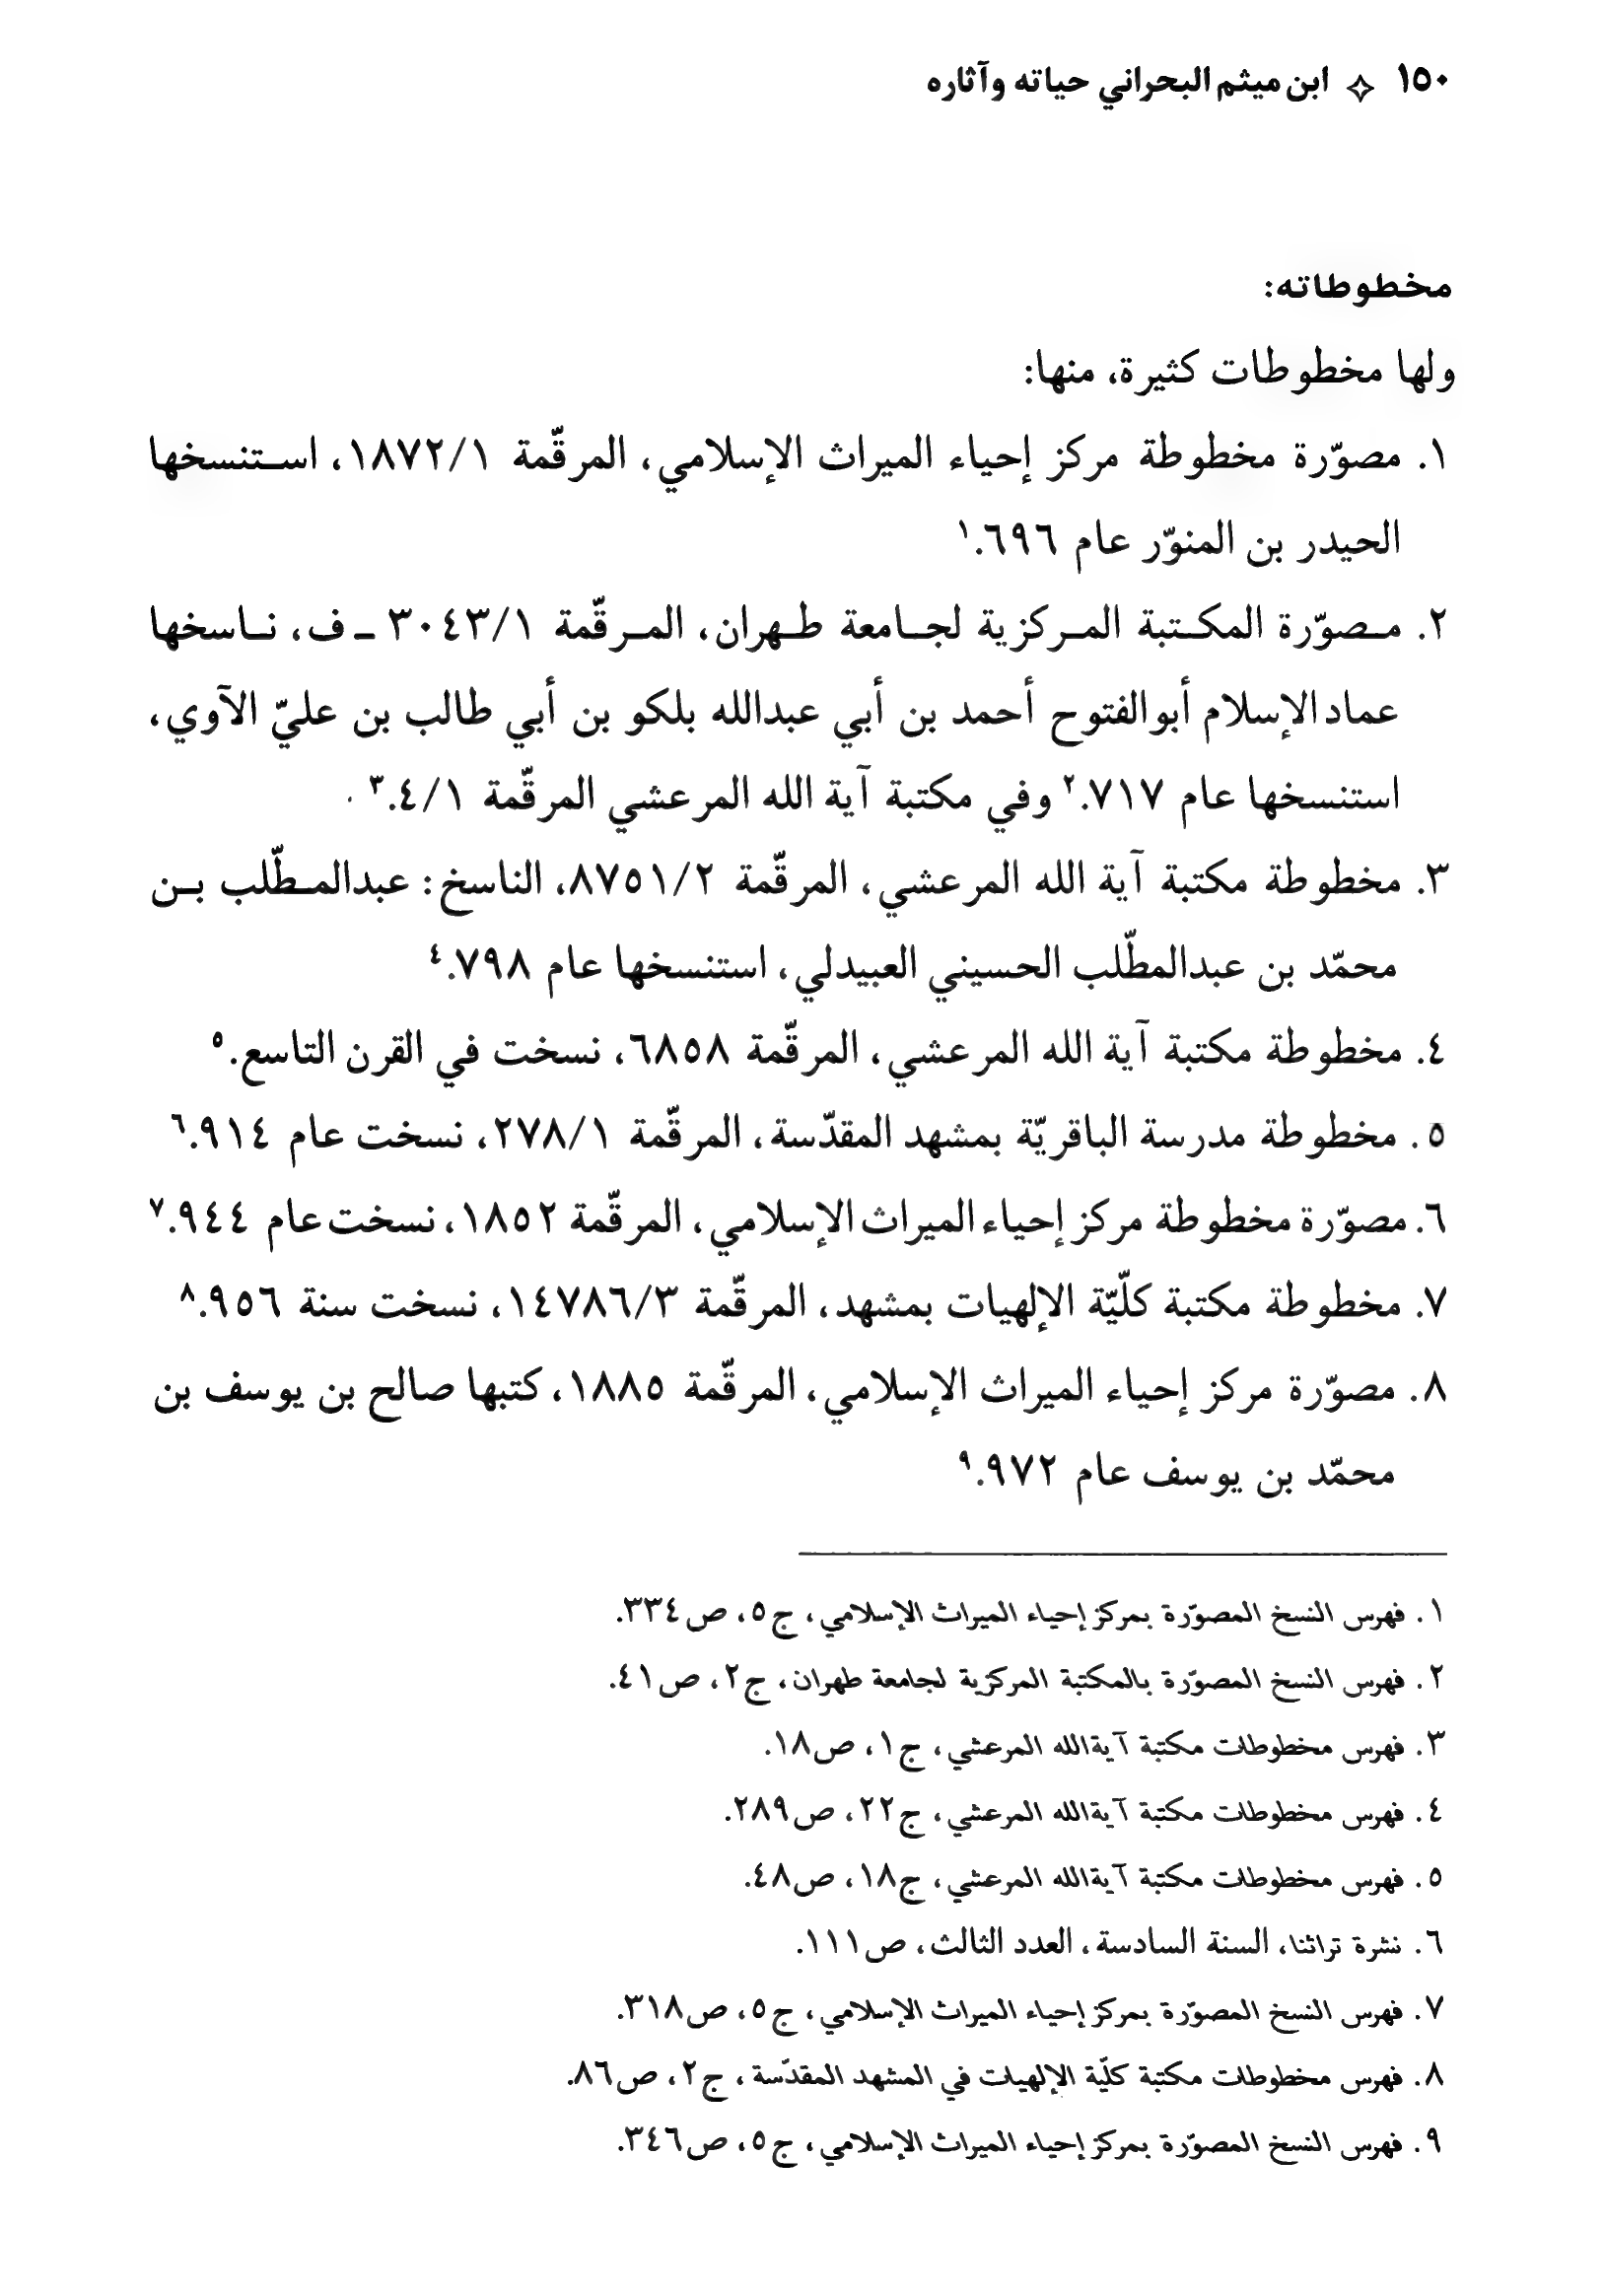 ١٥٠ ✧ ابن ميثم البحراني حياته وآثاره
مخطوطاته:
ولها مخطوطات كثيرة، منها:
١. مصوّرة مخطوطة مركز إحياء الميراث الإسلامي، المرقّمة ١٨٧٢/١، استنسخها
الحيدر بن المنوّر عام ٦٩٦.١
٢. مصوّرة المكتبة المركزية لجامعة طهران، المرقّمة ٣٠٤٣/١ ـ ف، ناسخها
عماد الإسلام أبو الفتوح أحمد بن أبي عبدالله بلكو بن أبي طالب بن عليّ الآوي،
استنسخها عام ٧١٧.٢ وفي مكتبة آية الله المرعشي المرقّمة ٤/١.٣
٣. مخطوطة مكتبة آية الله المرعشي، المرقّمة ٨٧٥١/٢، الناسخ: عبدالمطّلب بن
محمّد بن عبدالمطّلب الحسيني العبيدلي، استنسخها عام ٧٩٨.٤
٤. مخطوطة مكتبة آية الله المرعشي، المرقّمة ٦٨٥٨، نسخت في القرن التاسع.٥
٥. مخطوطة مدرسة الباقريّة بمشهد المقدّسة، المرقّمة ٢٧٨/١، نسخت عام ٩١٤.٦
٦. مصوّرة مخطوطة مركز إحياء الميراث الإسلامي، المرقّمة ١٨٥٢، نسخت عام ٩٤٤.٧
٧. مخطوطة مكتبة كلّيّة الإلهيات بمشهد، المرقّمة ١٤٧٨٦/٣، نسخت سنة ٩٥٦.٨
٨. مصوّرة مركز إحياء الميراث الإسلامي، المرقّمة ١٨٨٥، كتبها صالح بن يوسف بن
محمّد بن يوسف عام ٩٧٢.٩
١. فهرس النسخ المصوّرة بمركز إحياء الميراث الإسلامي، ج٥، ص٣٣٤.
٢. فهرس النسخ المصوّرة بالمكتبة المركزية لجامعة طهران، ج٢، ص٤١.
٣. فهرس مخطوطات مكتبة آية الله المرعشي، ج١، ص١٨.
٤. فهرس مخطوطات مكتبة آية الله المرعشي، ج٢٢، ص٢٨٩.
٥. فهرس مخطوطات مكتبة آية الله المرعشي، ج١٨، ص٤٨.
٦. نشرة تراثنا، السنة السادسة، العدد الثالث، ص١١١.
٧. فهرس النسخ المصوّرة بمركز إحياء الميراث الإسلامي، ج٥، ص٣١٨.
٨. فهرس مخطوطات مكتبة كلّيّة الإلهيات في المشهد المقدّسة، ج٢، ص٨٦.
٩. فهرس النسخ المصوّرة بمركز إحياء الميراث الإسلامي، ج٥، ص٣٤٦.